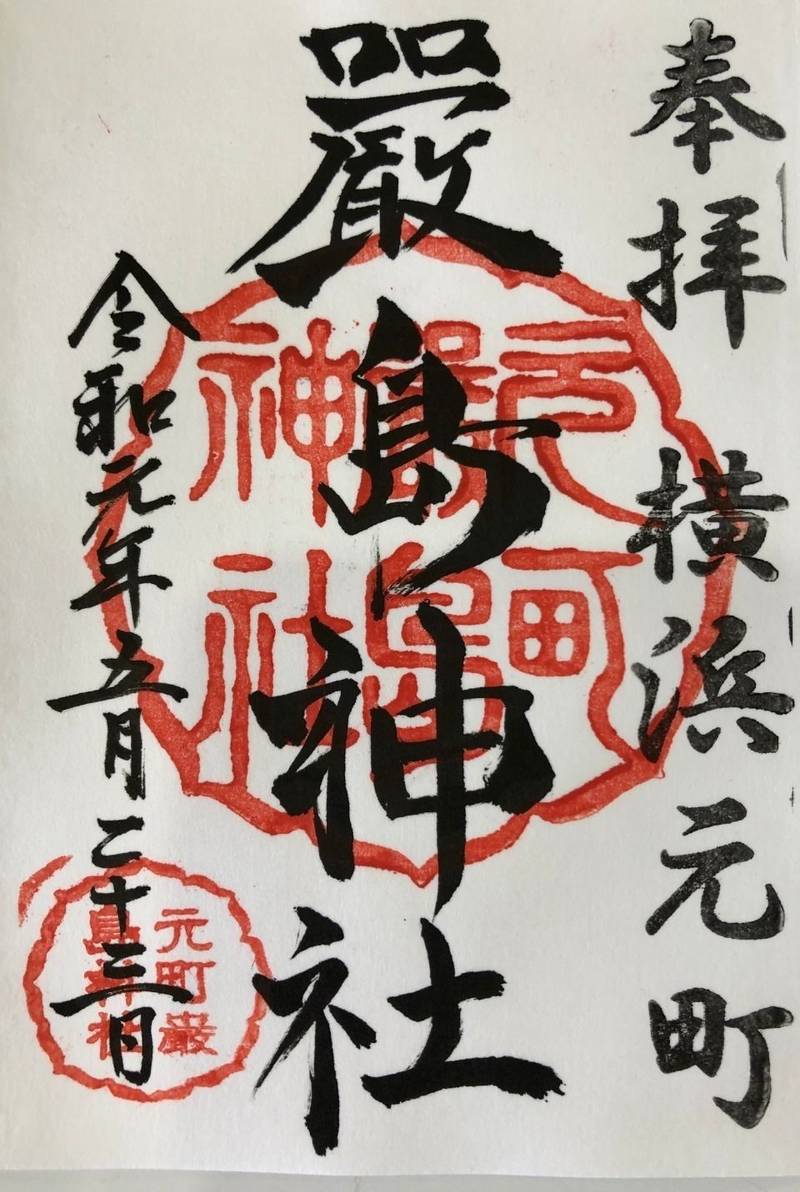 奉拝 横浜元町
嚴島神社
令和元年五月二十三日
元町
嚴島
神社
元町厳
島神社